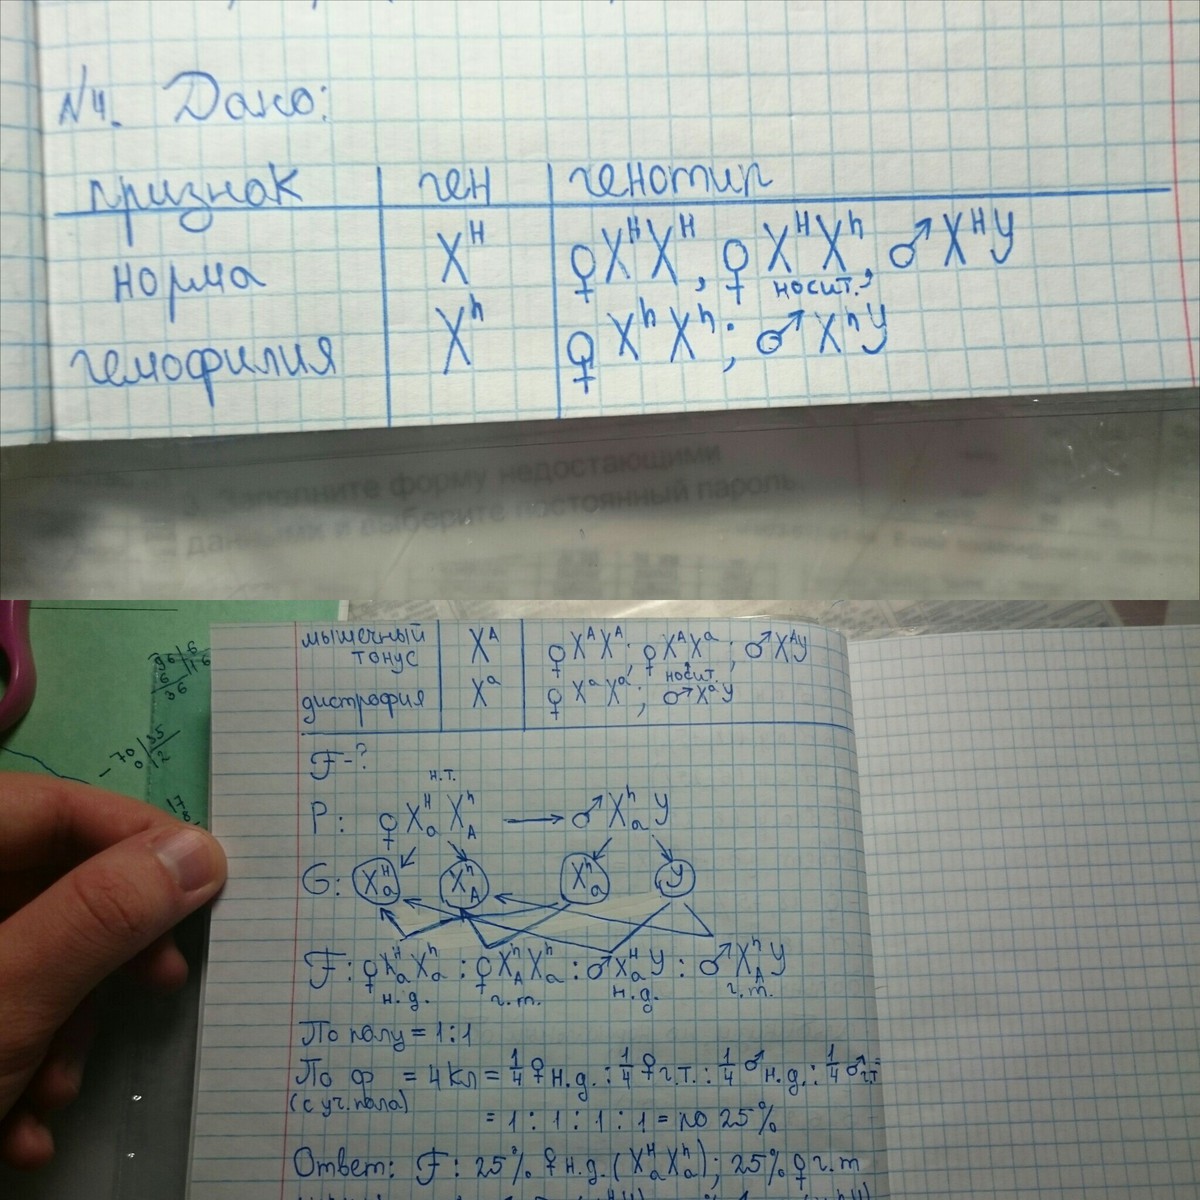 №4. Дано:
признак ген генотип
норма X^H ♀X^H X^H, ♀X^H X^h, ♂X^H Y
носит.
гемофилия X^h ♀X^h X^h; ♂X^h Y
3. Заполните форму недостающими
данными и выберите постоянный пароль
мышечный X^A ♀X^A X^A; ♀X^A X^a; ♂X^A Y
тонус носит.
дистрофия X^a ♀X^a X^a; ♂X^a Y
F-?
н.т.
P: ♀X^H_a X^h_A → ♂X^h_a Y
G: X^H_a X^h_A X^h_a Y
F: ♀X^H_a X^h_a : ♀X^h_A X^h_a : ♂X^H_a Y : ♂X^h_A Y
н.д. г.т. н.д. г.т.
По полу = 1:1
По ф = 4 кл = 1/4 ♀ н.д. : 1/4 ♀ г.т. : 1/4 ♂ н.д. : 1/4 ♂ г.т =
(с уч. пола)
= 1 : 1 : 1 : 1 = по 25%
Ответ: F: 25% ♀ н.д. (X^H_a X^h_a); 25% ♀ г.т